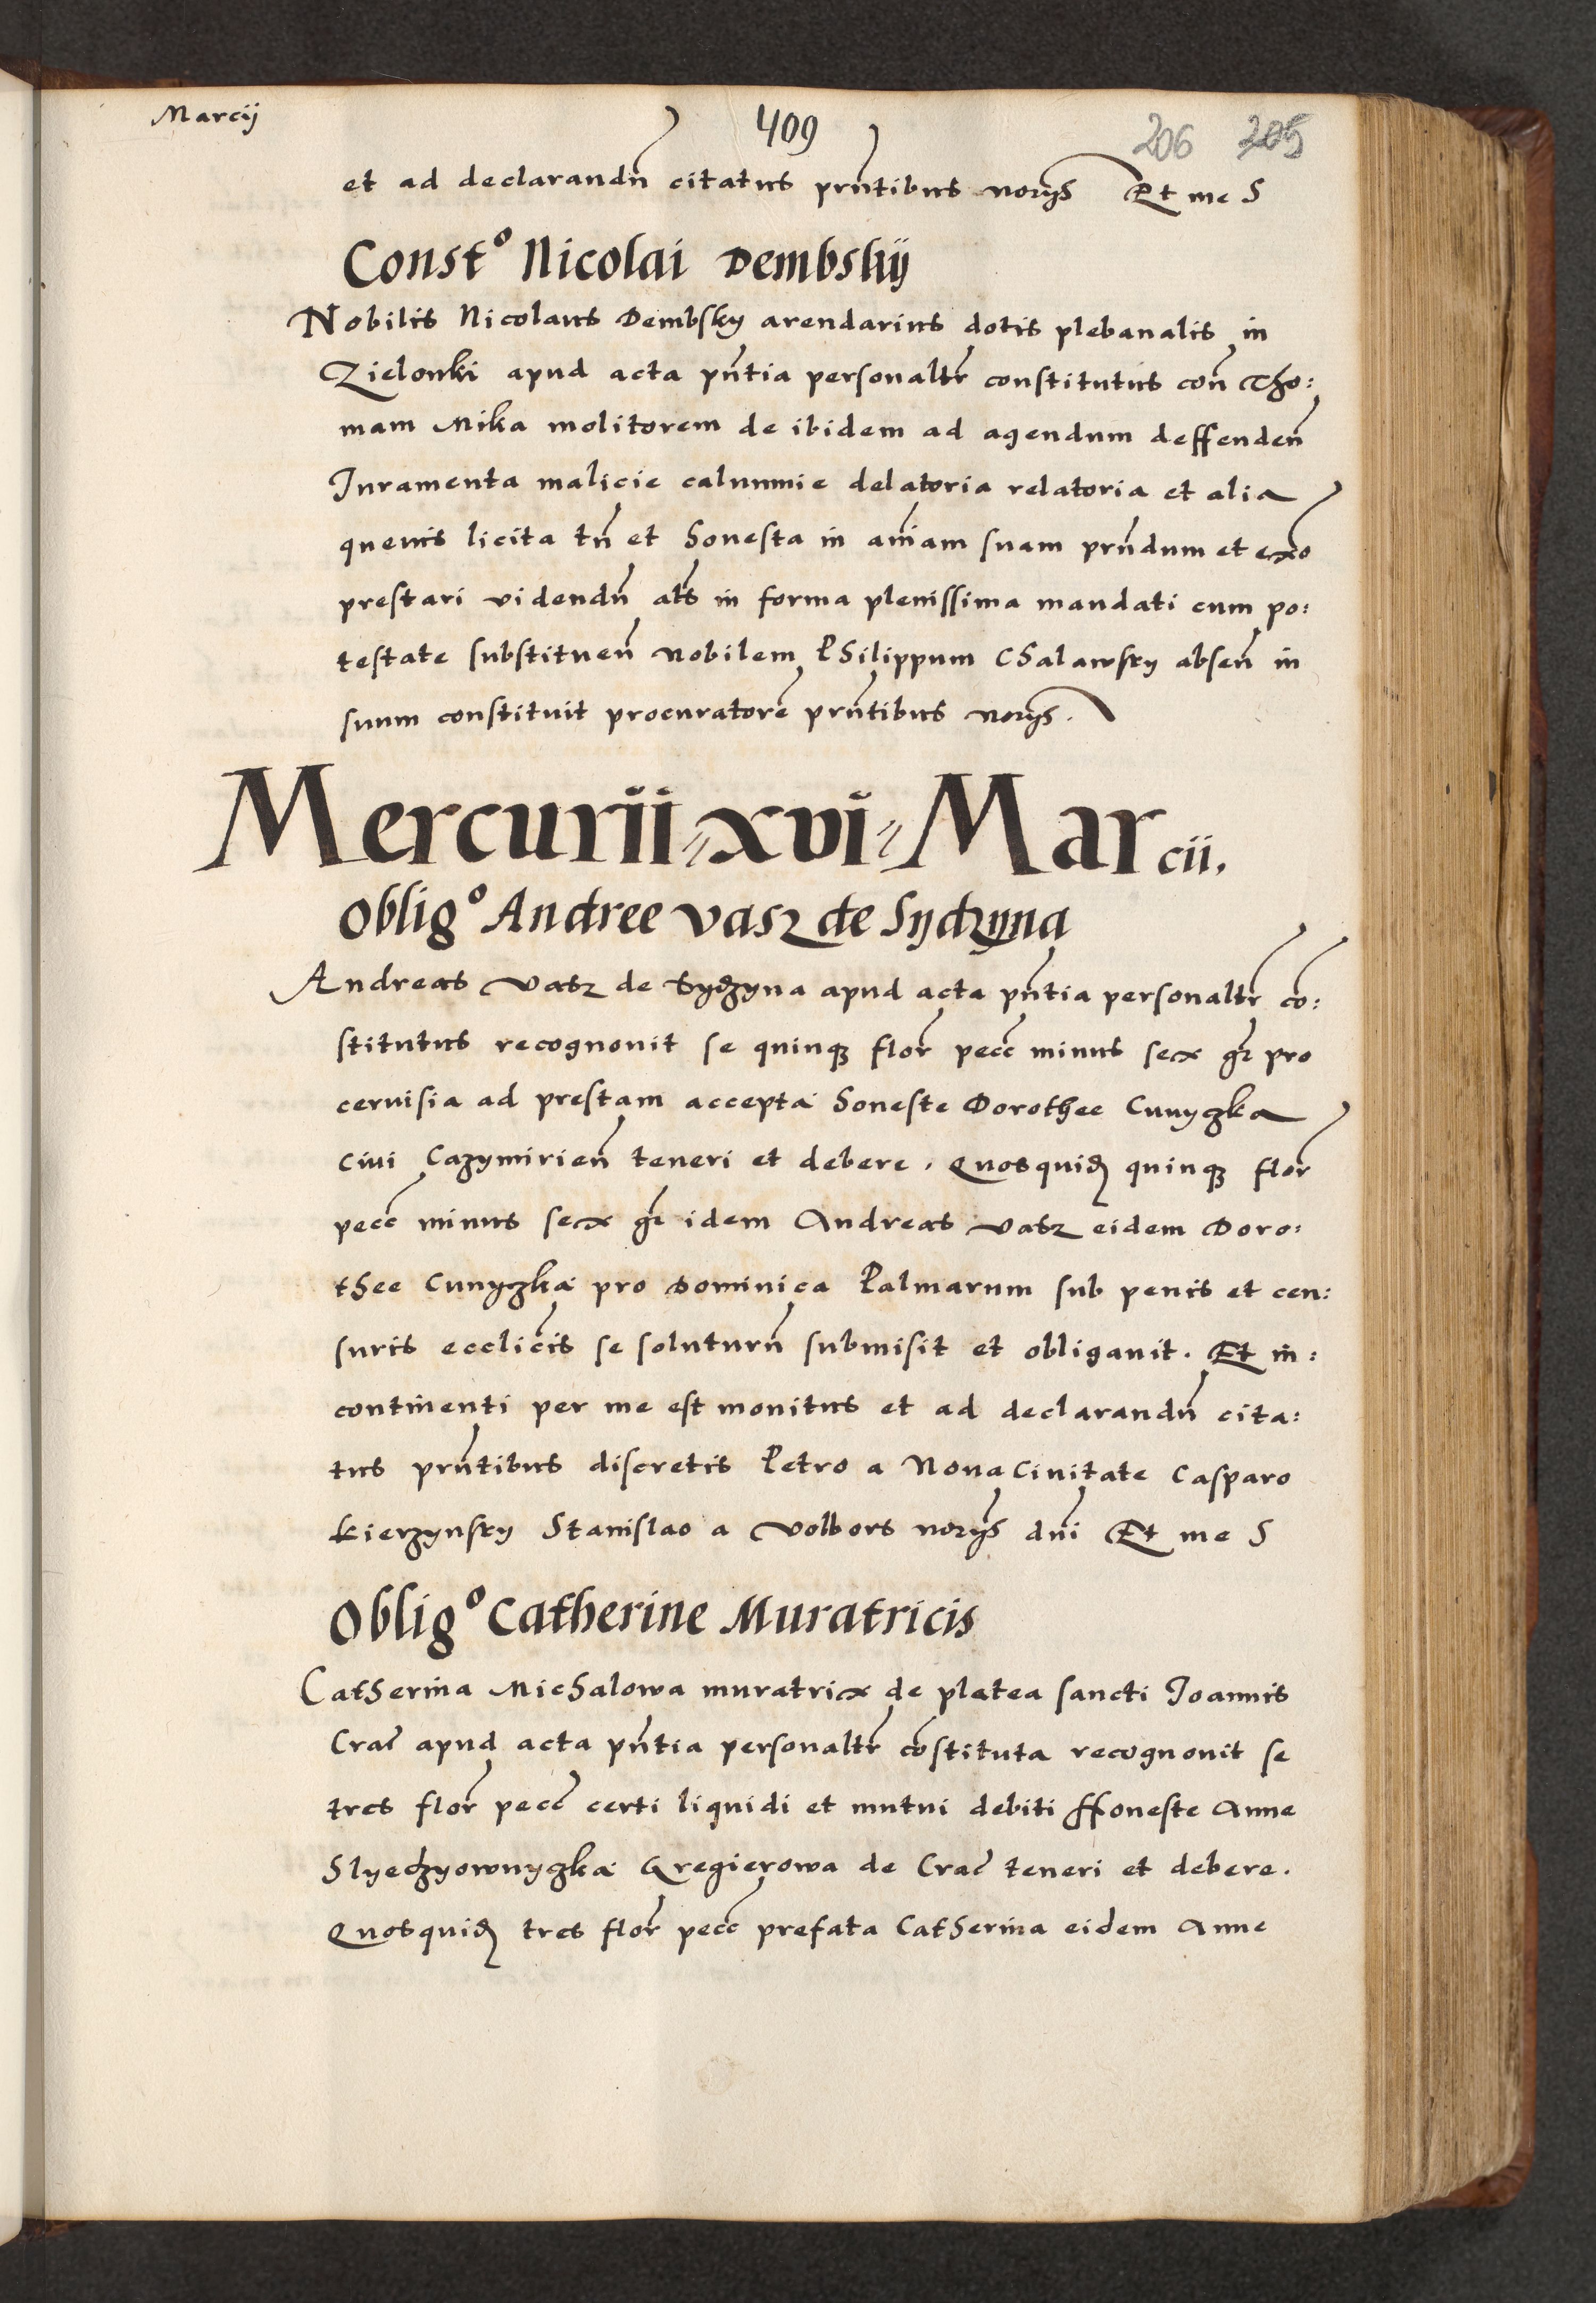 Marcij
409
206 205
et ad declarandñ citatus prñtibus norijs Et me S
Const° Nicolai Dembskij
Nobilis Nicolaus Dembsky arendarius dotis plebanalis in
Zielonki apud acta pñtia personaltr constitutus con Tho:
mam Mika molitorem de ibidem ad agendum deffendeñ
Iuramenta malicie calumnie delatoria relatoria et alia
quevis licita tñ et honesta in aniam suam prñdum et exo
prestari videndñ als in forma plenissima mandati cum po:
testate substitueñ Nobilem Philippum Chalawsky abseñ in
suum constituit procuratorē prñtibus norijs.
Mercurii xvi Marcii.
Oblig° Andree Vasz de Sydzyna
Andreas Vasz de Sydzyna apud acta pñtia personaltr cō:
stitutus recognovit se quinqz flor pecc minus sex gr pro
cervisia ad prestam accepta honeste Dorothee Cunyczka
Civi Cazymirieñ teneri et debere. Quosquidz quinqz flor
pecc minus sex gr idem Andreas Vasz eidem Doro:
thee Cunyczka pro dominica Palmarum sub penis et cen:
suris ecclicis se soluturñ submisit et obligavit. Et in:
continenti per me est monitus et ad declarandñ cita:
tus prñtibus discretis Petro a Nova Civitate Casparo
Kierzynsky Stanislao a Volbors norijs dni Et me S
Oblig° Catherine Muratricis
Catherina Michalowa muratrix de platea sancti Joannis
Crac apud acta pñtia personaltr cōstituta recognovit se
tres flor pecc certi liquidi et mutui debiti Honeste Anne
Slyedzyownyczka Gregierowa de Crac teneri et debere.
Quosquidz tres flor pecc prefata Catherina eidem Anne